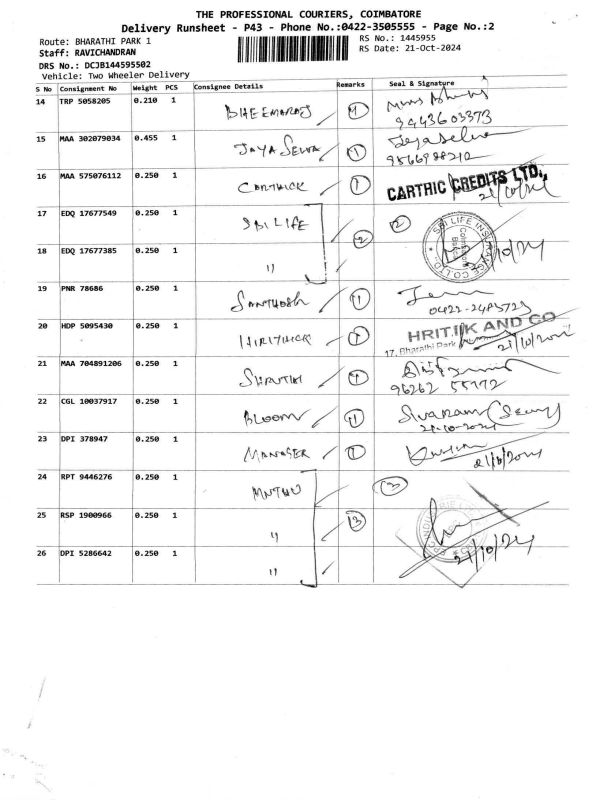 THE PROFESSIONAL COURIERS, COIMBATORE
Delivery Runsheet - P43 - Phone No.:0422-3505555 - Page No.:2
Route: BHARATHI PARK 1
RS No.: 1445955
Staff: RAVICHANDRAN
RS Date: 21-Oct-2024
DRS No.: DCJB144595502
Vehicle: Two Wheeler Delivery
S No Consignment No Weight PCS Consignee Details Remarks Seal & Signature
14 TRP 5058205 0.210 1 BHEEMARAJ 1
9443603373
15 MAA 302079034 0.455 1 JAYA SELVA 1 Jeyaselva
9566988212
16 MAA 575076112 0.250 1 CARTHICK 1 CARTHIC CREDITS LTD.,
21/10/24
17 EDQ 17677549 0.250 1 SBI LIFE 2 2 SBI LIFE INSURANCE CO. LTD.
18 EDQ 17677385 0.250 1 "
19 PNR 78686 0.250 1 SANTHOSH 1
0422-2485723
20 HDP 5095430 0.250 1 HIRITHICK 1 HRITIIK AND CO
17, Bharathi Park
21/10/2024
21 MAA 704891206 0.250 1 SHRUTHI 1
96262 55772
22 CGL 10037917 0.250 1 BLOOM 1 Sivaram
21-10-2024
23 DPI 378947 0.250 1 MANAGER 1
21/10/2024
24 RPT 9446276 0.250 1 MUTHU 3
25 RSP 1900966 0.250 1 " 3
26 DPI 5286642 0.250 1 " 21/10/24